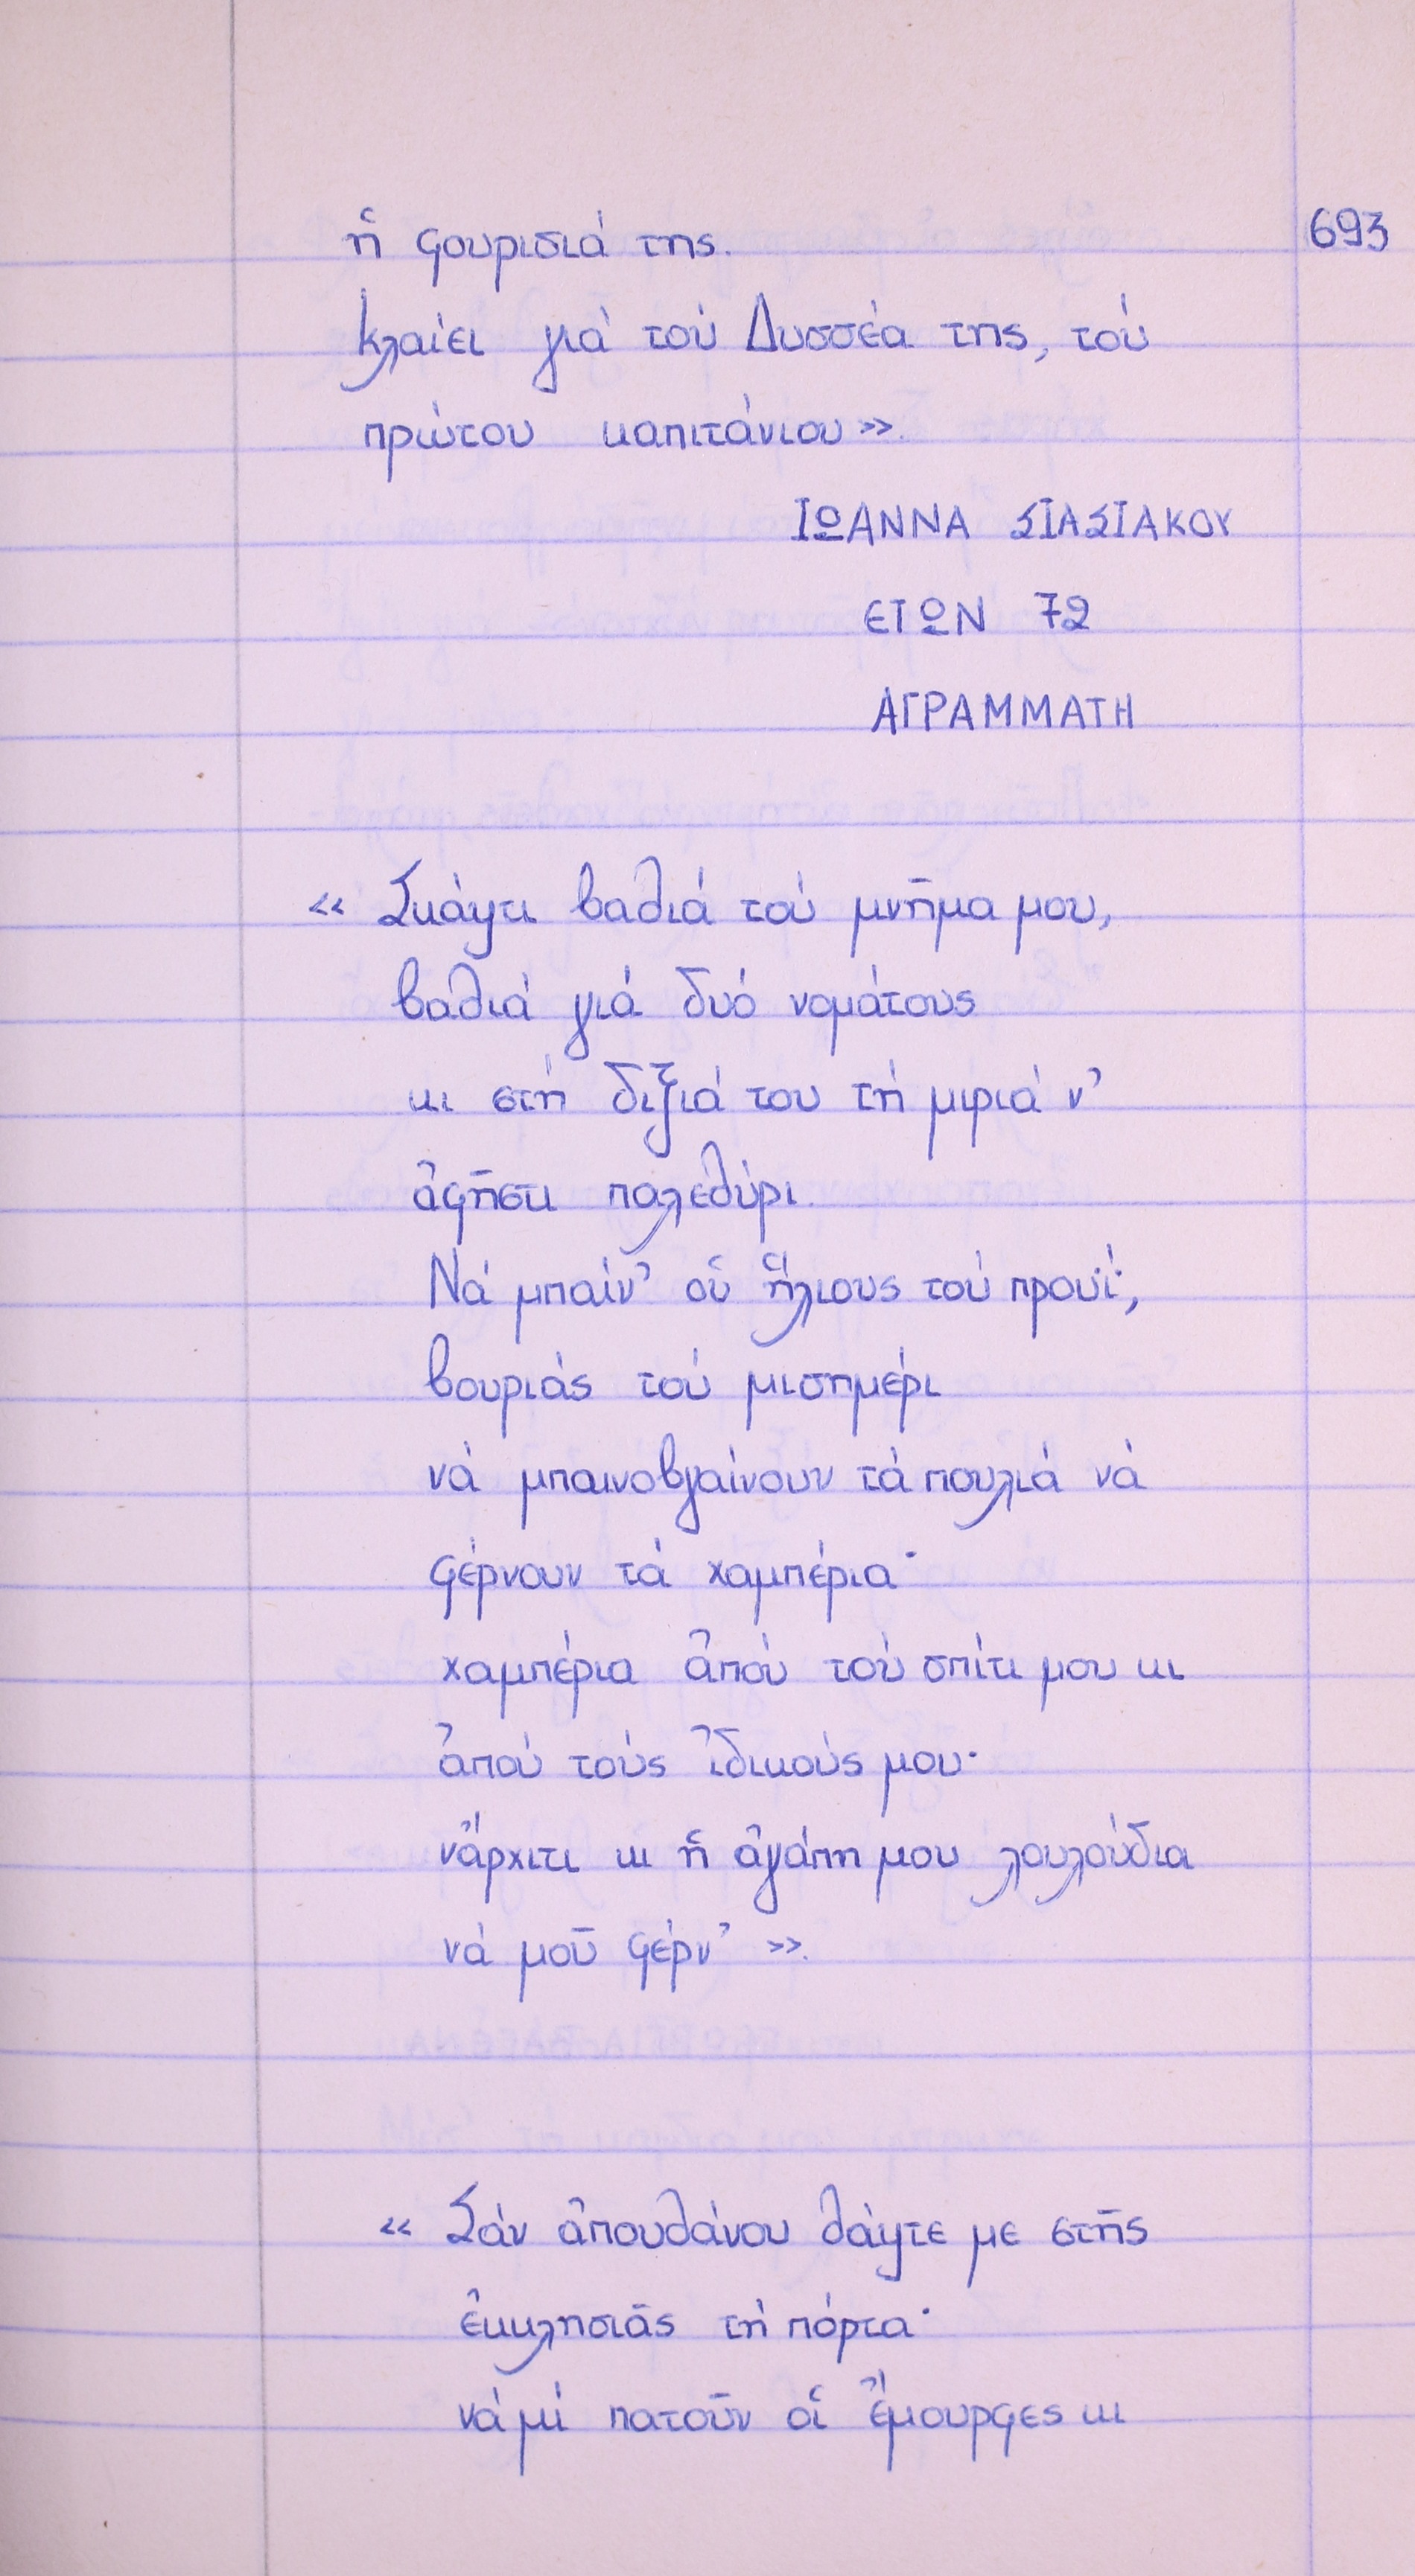 693
ἡ φουρισιά της.
κλαίει γιά τού Δυσσέα της, τού
πρώτου καπιτάνιου».
ΙΩΑΝΝΑ ΣΙΑΣΙΑΚΟΥ
ΕΤΩΝ 72
ΑΓΡΑΜΜΑΤΗ
« Σκάψτι βαθιά τού μνῆμα μου,
βαθιά γιά δυό νομάτους
κι στή διξιά του τή μιριά ν'
ἀφῆστι παλεθύρι.
Νά μπαίν' οὑ ἥλιους τού προυΐ,
βουριάς τού μισημέρι
νά μπαινοβγαίνουν τά πουλιά νά
φέρνουν τά χαμπέρια·
χαμπέρια ἀπού τού σπίτι μου κι
ἀπού τούς ἰδικούς μου·
νἄρχιτι κι ἡ ἀγάπη μου λουλούδια
νά μοῦ φέρν' ».
« Σάν ἀπουθάνου θάψτε με στῆς
ἐκκλησιᾶς τή πόρτα·
νά μί πατοῦν οἱ ἔμουρφες κι